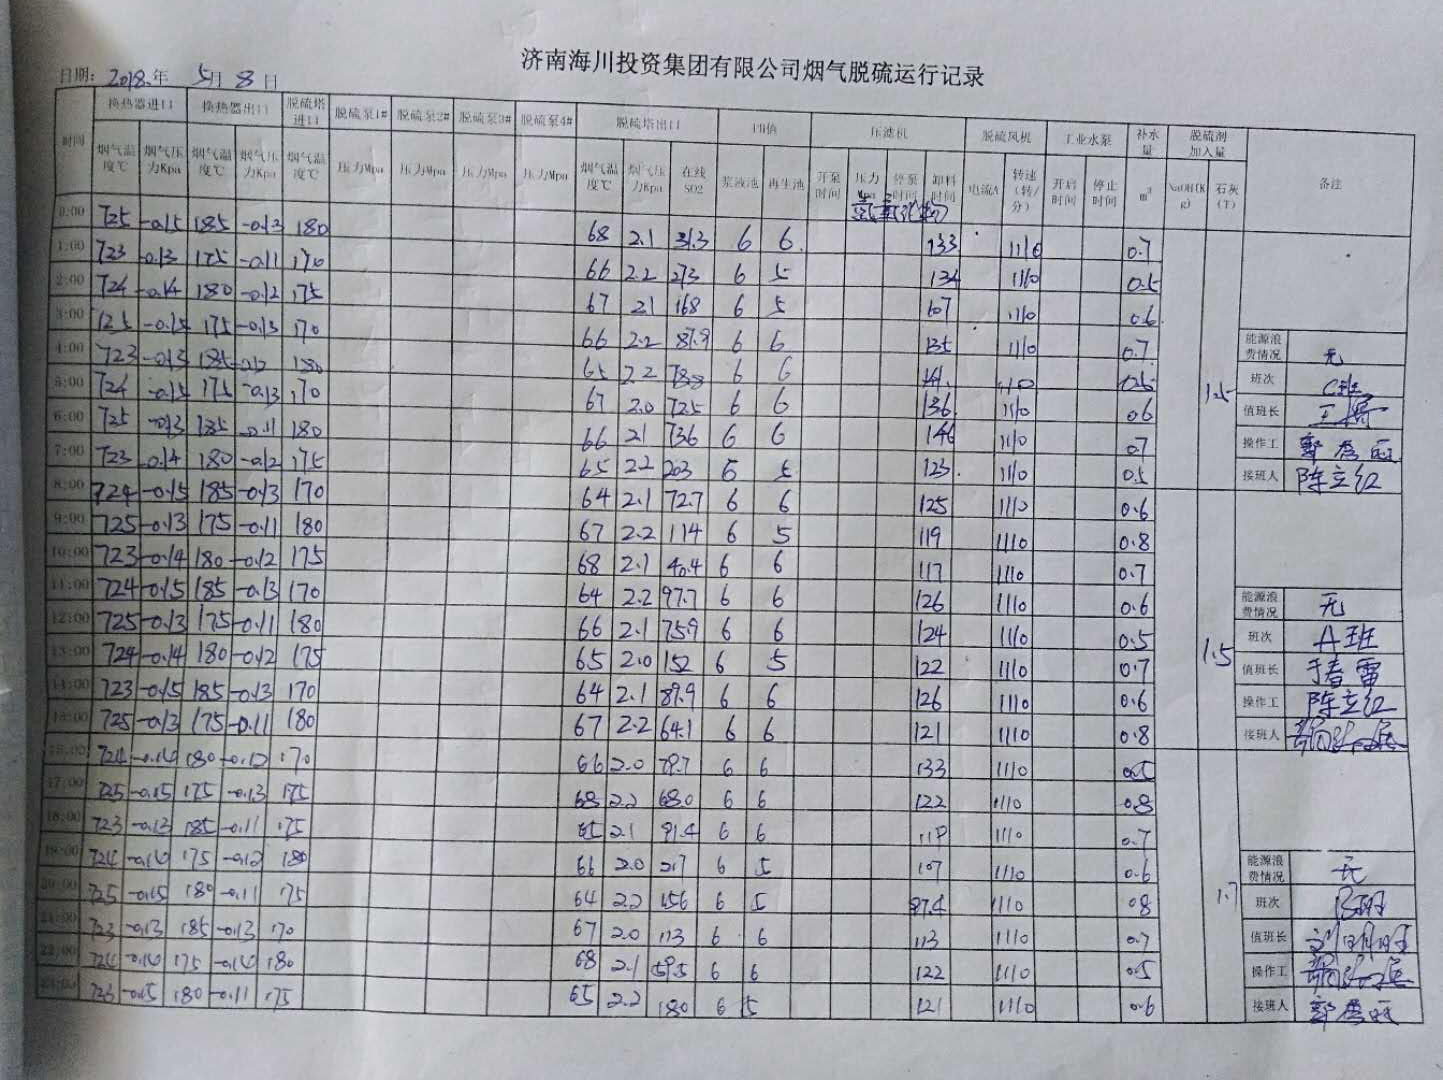 济南海川投资集团有限公司烟气脱硫运行记录
日期: 2018年 5月 8日
时间 换热器进口 换热器出口 脱硫塔进口 脱硫泵1# 脱硫泵2# 脱硫泵3# 脱硫泵4# 脱硫塔出口 PH值 压滤机 脱硫风机 工业水泵 补水量 脱硫剂加入量 备注
烟气温度℃ 烟气压力Kpa 烟气温度℃ 烟气压力Kpa 烟气温度℃ 压力Mpa 压力Mpa 压力Mpa 压力Mpa 烟气温度℃ 烟气压力Kpa 在线SO2 浆液池 再生池 开泵时间 压力Mpa 停泵时间 卸料时间 电流A 转速(转/分) 开启时间 停止时间 m³ NaOH(Kg) 石灰(T)
氮氧化物
0:00 725 -0.15 185 -0.13 180 68 2.1 31.3 6 6 133 1110 0.7
1:00 723 -0.13 175 -0.11 170 66 2.2 273 6 5 134 1110 0.5
2:00 724 -0.14 180 -0.12 175 67 2.1 168 6 5 107 1110 0.6
3:00 725 -0.15 175 -0.13 170 66 2.2 87.9 6 6 135 1110 0.7 能源浪费情况 无
4:00 723 -0.13 185 -0.12 180 65 2.2 6 6 1110 0.5 班次 C班
5:00 724 -0.15 175 -0.13 170 67 2.0 72.5 6 6 136 1110 0.6 1.5 值班长
6:00 725 -0.13 185 -0.11 180 66 2.1 736 6 6 146 1110 0.7 操作工
7:00 723 -0.14 180 -0.12 175 65 2.2 203 6 5 123 1110 0.5 接班人 陈立红
8:00 724 -0.15 185 -0.13 170 64 2.1 72.7 6 6 125 1110 0.6
9:00 725 -0.13 175 -0.11 180 67 2.2 114 6 5 119 1110 0.8
10:00 723 -0.14 180 -0.12 175 68 2.1 40.4 6 6 117 1110 0.7
11:00 724 -0.15 185 -0.13 170 64 2.2 97.7 6 6 126 1110 0.6 能源浪费情况 无
12:00 725 -0.13 175 -0.11 180 66 2.1 75.9 6 6 124 1110 0.5 班次 A班
13:00 724 -0.14 180 -0.12 175 65 2.0 152 6 5 122 1110 0.7 1.5 值班长 于春雷
14:00 723 -0.15 185 -0.13 170 64 2.1 87.9 6 6 126 1110 0.6 操作工 陈立红
15:00 725 -0.13 175 -0.11 180 67 2.2 64.1 6 6 121 1110 0.8 接班人
16:00 724 -0.14 180 -0.12 170 66 2.0 78.7 6 6 133 1110 0.5
17:00 725 -0.15 175 -0.13 175 68 2.2 68.0 6 6 122 1110 0.8
18:00 723 -0.13 185 -0.11 175 65 2.1 91.4 6 6 1110 0.7
19:00 724 -0.14 175 -0.12 180 66 2.0 217 6 5 107 1110 0.6 能源浪费情况 无
20:00 725 -0.15 180 -0.11 175 64 2.2 156 6 5 97.4 1110 0.8 1.7 班次
21:00 723 -0.13 185 -0.13 170 67 2.0 113 6 6 113 1110 0.7 值班长
22:00 724 -0.14 175 -0.14 180 68 2.1 59.5 6 6 122 1110 0.5 操作工
23:00 726 -0.15 180 -0.11 175 65 2.2 180 6 5 121 1110 0.6 接班人